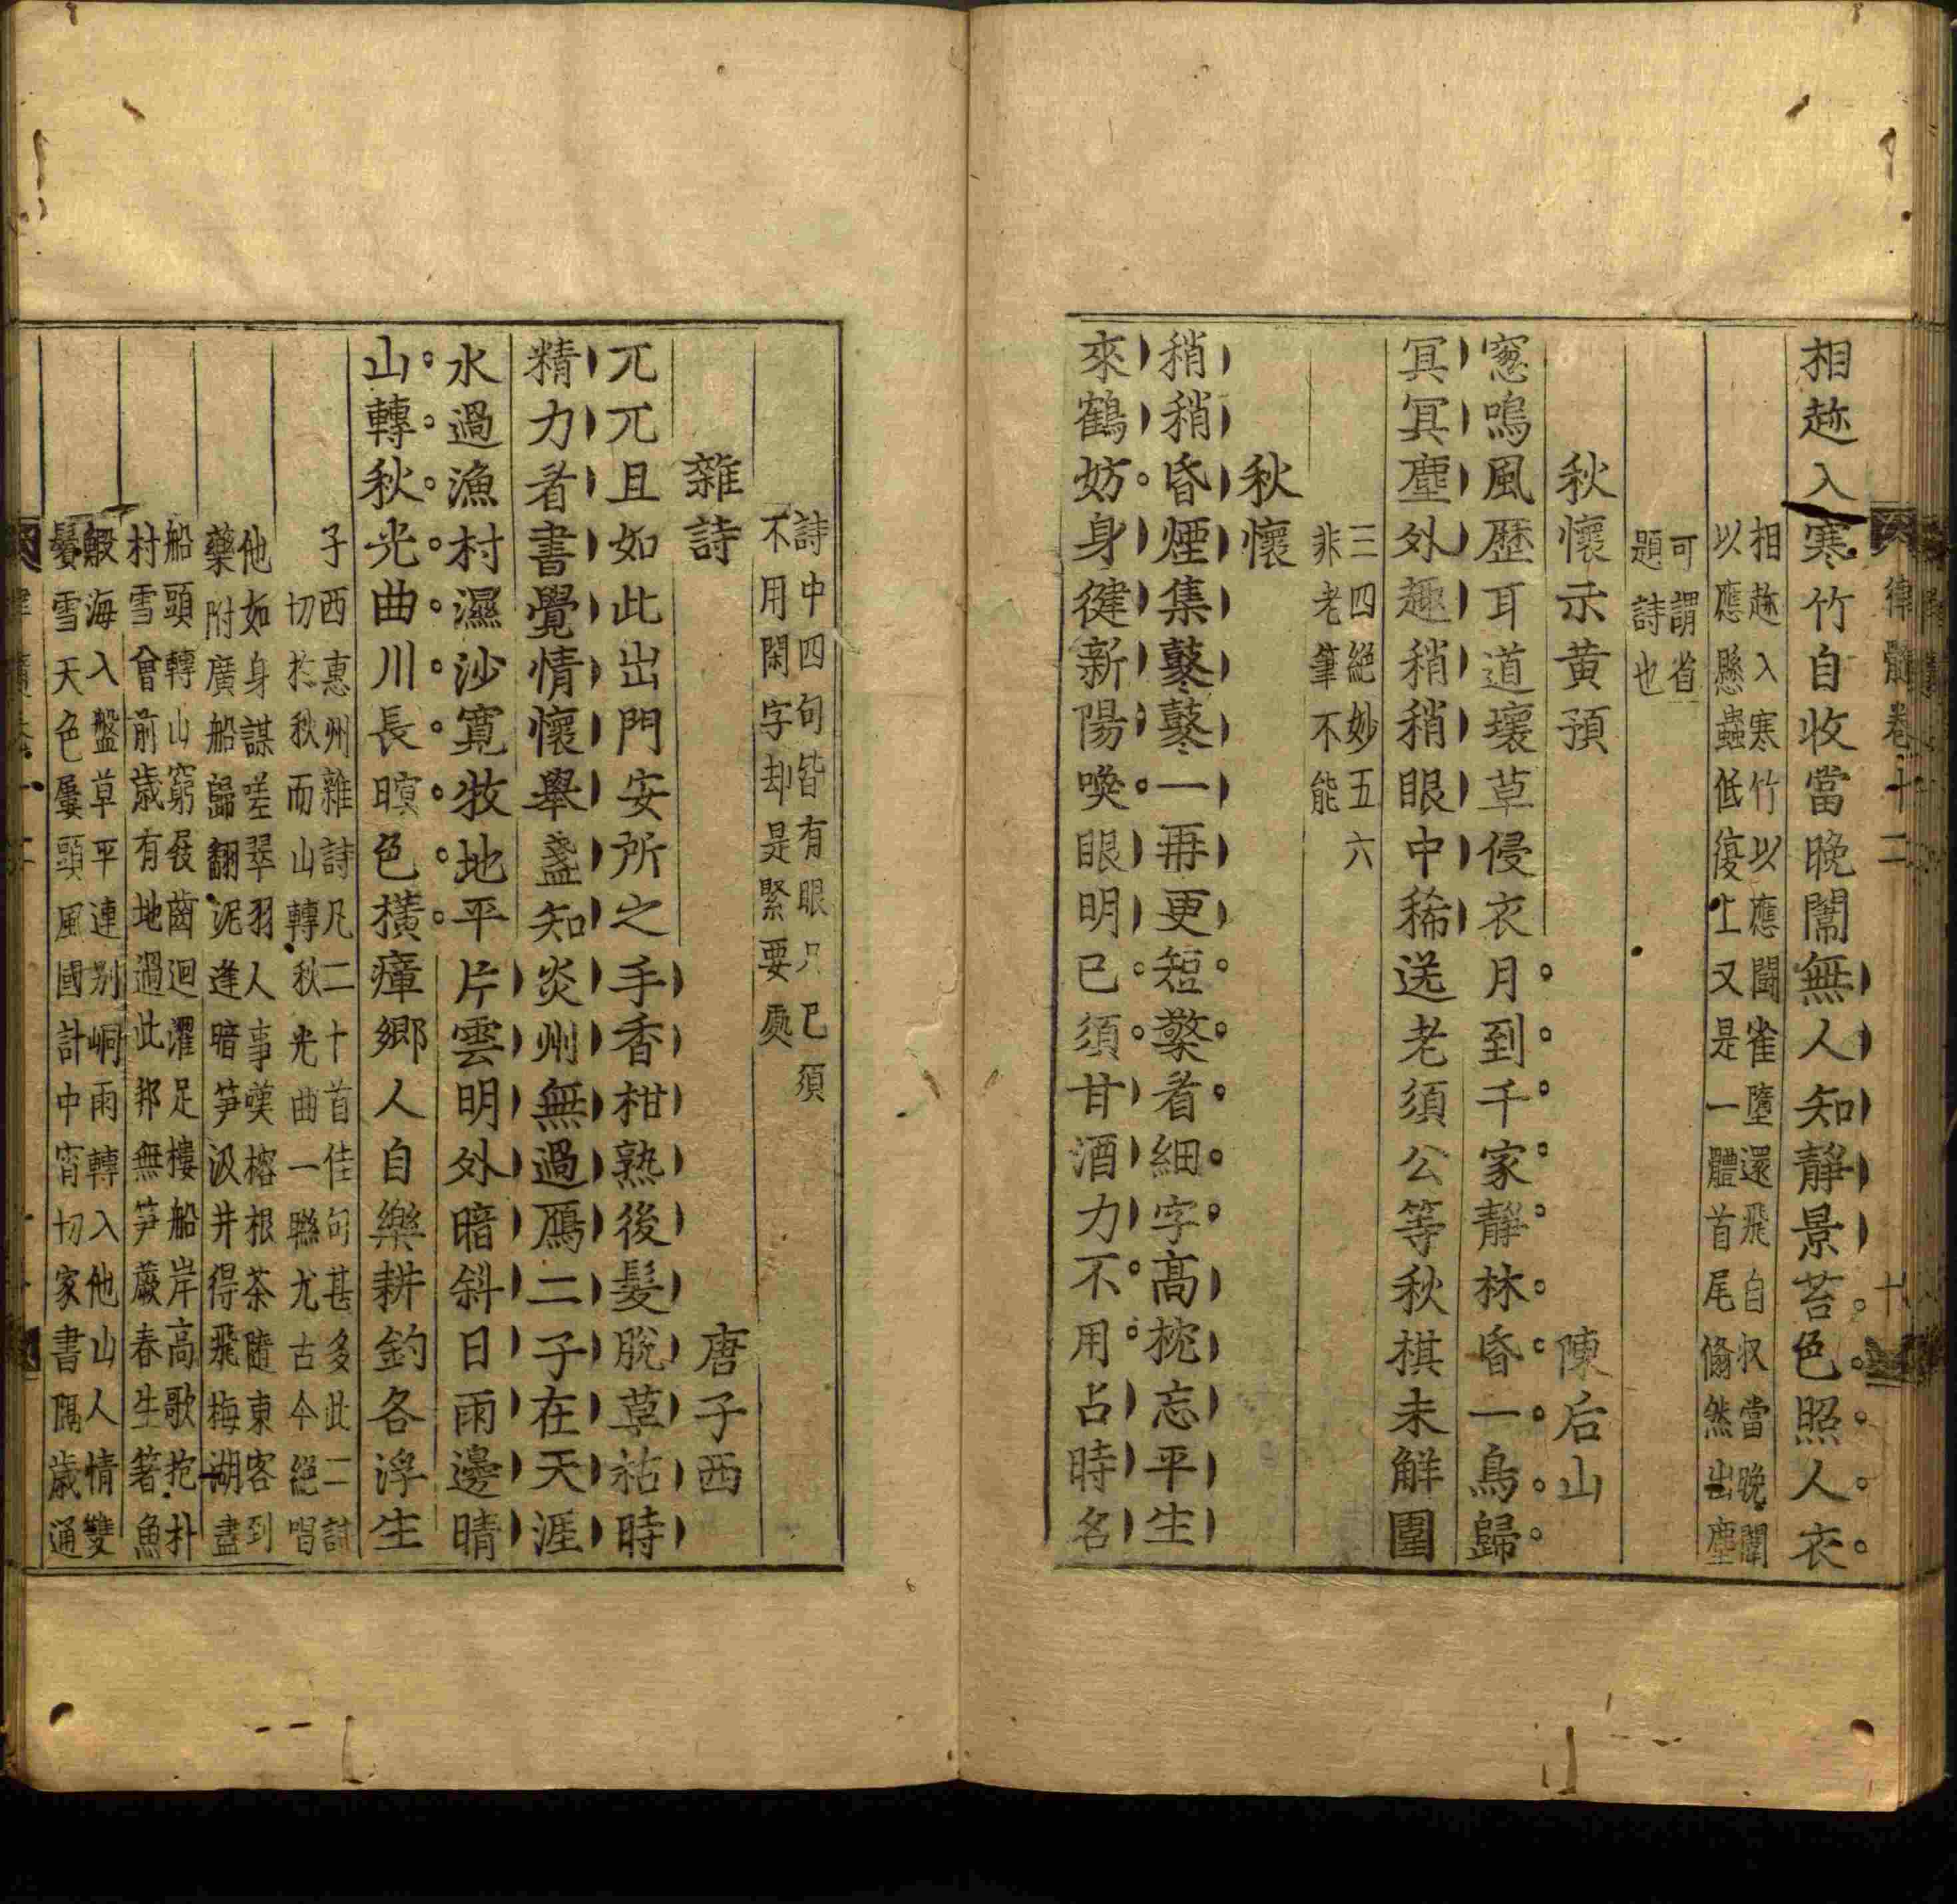 律髓卷十二
十
相趂入寒竹自收當晚闈無人知靜景苔色照人衣
相趂入寒竹以應闘雀墮還飛自收當晚闈
以應懸蟲低復上又是一體首尾翛然出塵
可謂省
題詩也
秋懷示黄預 陳后山
窓嗚風歷耳道壞草侵衣月到千家靜林昏一鳥歸
冥冥塵外趣稍稍眼中稀送老須公等秋棋未解圍
三四絕妙五六
非老筆不能
秋懷
稍稍昏煙集鼕鼕一再更短檠看細字高枕忘平生
來鶴妨身健新陽喚眼明已須甘酒力不用占時名
詩中四句皆有眼只已須
不用閑字却是緊要處
雜詩 唐子西
兀兀且如此出門安所之手香柑熟後髮脫草祜時
精力看書覺情懷舉盞知炎州無過鴈二子在天涯
水過漁村濕沙寬牧地平片雲明外暗斜日雨邊晴
山轉秋光曲川長暝色橫瘴鄉人自樂耕釣各浮生
子西惠州雜詩凡二十首佳句甚多此二詩
切於秋而山轉秋光曲一聯尤古今絕唱
他如身謀嗟翠羽人事嘆榕根茶隨東客到
藥附廣船歸翻泥逢暗笋汲井得飛梅湖盡
船頭轉山窮屐齒迴濯足樓船岸高歌抱朴
村雪曾前歲有地過此邦無笋蕨春生箸魚
鰕海入盤草平連別峒雨轉入他山人情雙
鬢雪天色屢頭風國計中宵切家書隔歲通